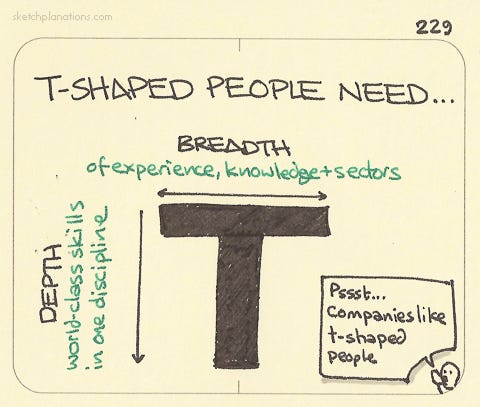 sketchplanations.com
229
T-SHAPED PEOPLE NEED...
BREADTH
of experience, knowledge + sectors
DEPTH
world-class skills
in one discipline
T
Pssst...
Companies like
t-shaped
people